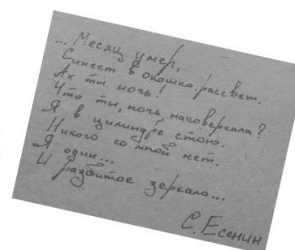 ... Месяц умер,
Синеет в окошко рассвет.
Ах ты ночь!
Что ты, ночь, наковеркала?
Я в цилиндре стою.
Никого со мной нет.
Я один...
И разбитое зеркало...
С. Есенин